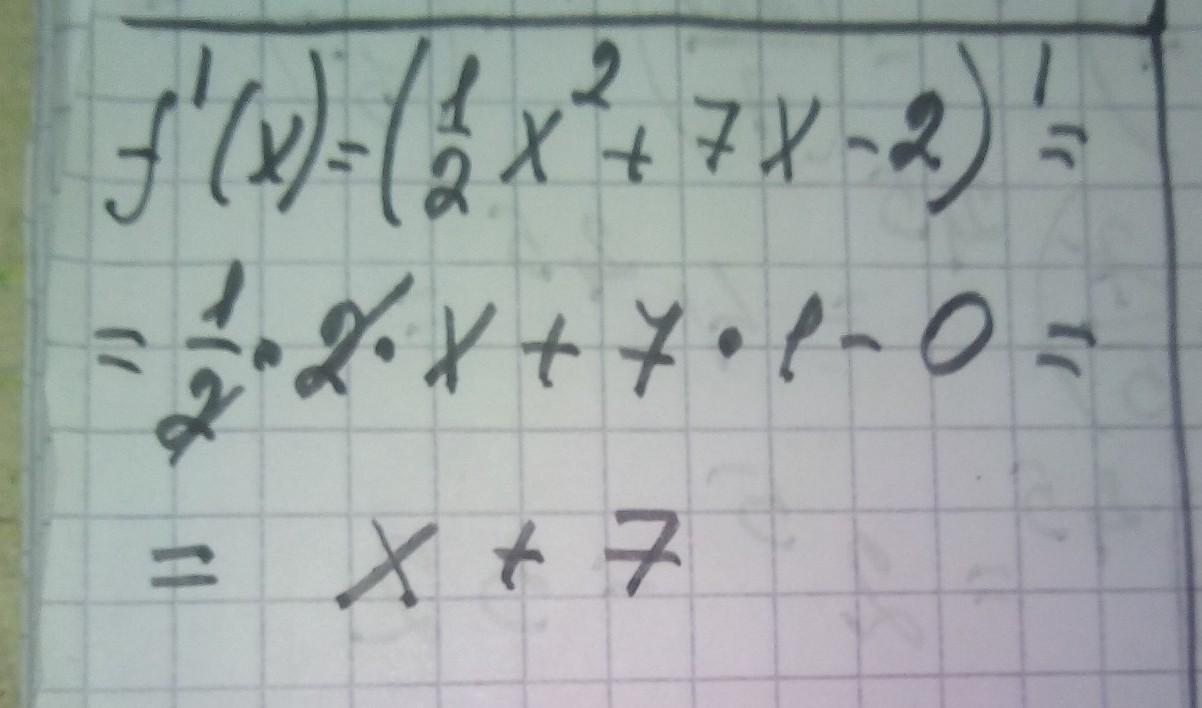 f'(x)=(1/2 x²+7x-2)'=
=1/2·2·x+7·1-0=
= x+7